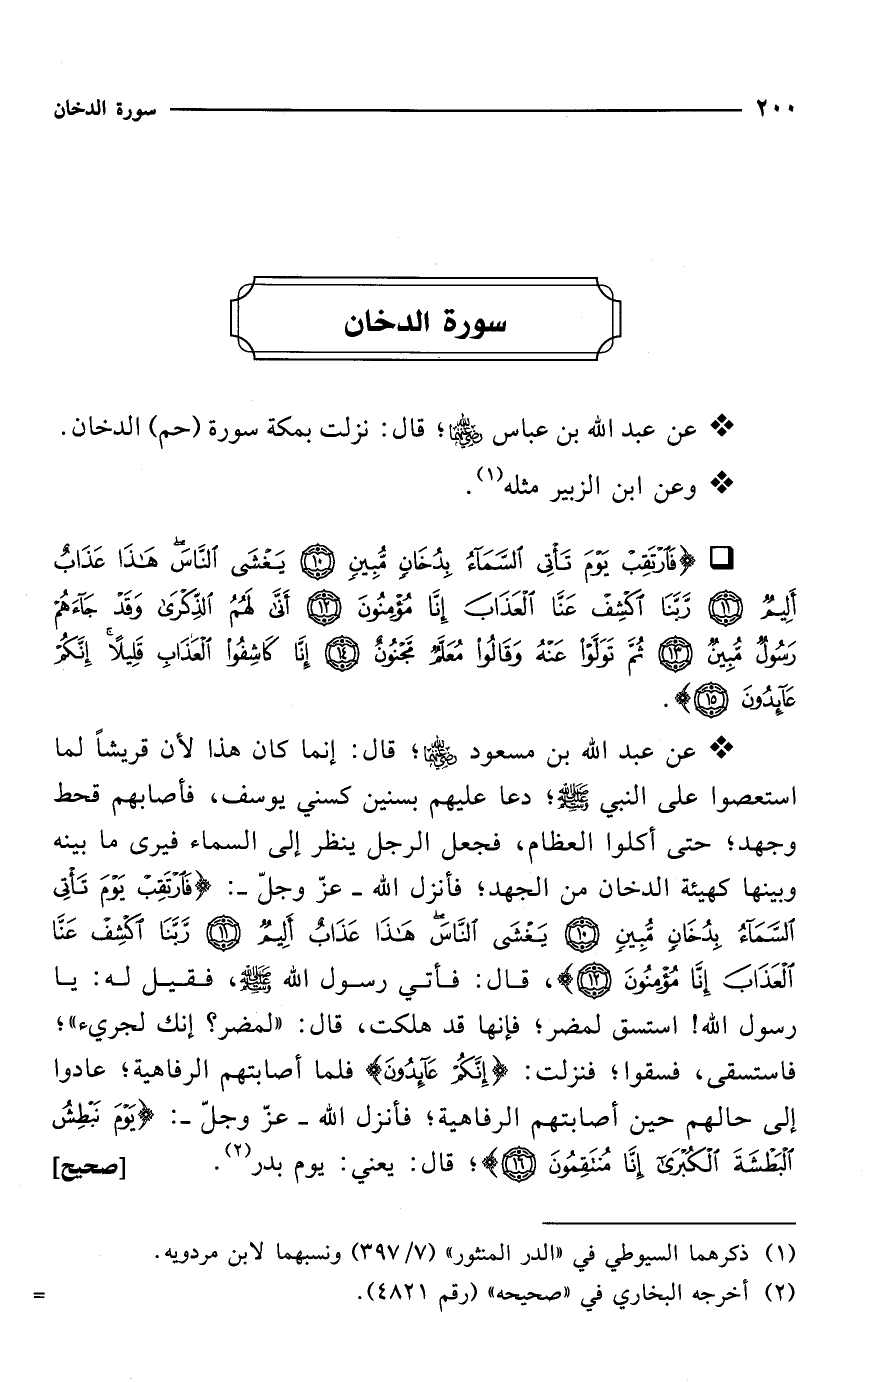 ٢٠٠ سورة الدخان
سورة الدخان
❖ عن عبد الله بن عباس ﵄؛ قال: نزلت بمكة سورة (حم) الدخان.
❖ وعن ابن الزبير مثله(١).
❑ ﴿فَٱرْتَقِبْ يَوْمَ تَأْتِى ٱلسَّمَآءُ بِدُخَانٍ مُّبِينٍ ١٠ يَغْشَى ٱلنَّاسَۖ هَٰذَا عَذَابٌ
أَلِيمٌ ١١ رَّبَّنَا ٱكْشِفْ عَنَّا ٱلْعَذَابَ إِنَّا مُؤْمِنُونَ ١٢ أَنَّىٰ لَهُمُ ٱلذِّكْرَىٰ وَقَدْ جَآءَهُمْ
رَسُولٌ مُّبِينٌ ١٣ ثُمَّ تَوَلَّوْا۟ عَنْهُ وَقَالُوا۟ مُعَلَّمٌ مَّجْنُونٌ ١٤ إِنَّا كَاشِفُوا۟ ٱلْعَذَابِ قَلِيلًاۚ إِنَّكُمْ
عَآئِدُونَ ١٥﴾.
❖ عن عبد الله بن مسعود ﵁؛ قال: إنما كان هذا لأن قريشاً لما
استعصوا على النبي ﷺ؛ دعا عليهم بسنين كسني يوسف، فأصابهم قحط
وجهد؛ حتى أكلوا العظام، فجعل الرجل ينظر إلى السماء فيرى ما بينه
وبينها كهيئة الدخان من الجهد؛ فأنزل الله ـ عزّ وجلّ ـ: ﴿فَٱرْتَقِبْ يَوْمَ تَأْتِى
ٱلسَّمَآءُ بِدُخَانٍ مُّبِينٍ ١٠ يَغْشَى ٱلنَّاسَۖ هَٰذَا عَذَابٌ أَلِيمٌ ١١ رَّبَّنَا ٱكْشِفْ عَنَّا
ٱلْعَذَابَ إِنَّا مُؤْمِنُونَ ١٢﴾، قال: فأتي رسول الله ﷺ، فقيل له: يا
رسول الله! استسق لمضر؛ فإنها قد هلكت، قال: «لمضر؟ إنك لجريء»؛
فاستسقى، فسقوا؛ فنزلت: ﴿إِنَّكُمْ عَآئِدُونَ﴾ فلما أصابتهم الرفاهية؛ عادوا
إلى حالهم حين أصابتهم الرفاهية؛ فأنزل الله ـ عزّ وجلّ ـ: ﴿يَوْمَ نَبْطِشُ
ٱلْبَطْشَةَ ٱلْكُبْرَىٰٓ إِنَّا مُنتَقِمُونَ ١٦﴾؛ قال: يعني: يوم بدر(٢). [صحيح]
(١) ذكرهما السيوطي في «الدر المنثور» (٧/ ٣٩٧) ونسبهما لابن مردويه.
(٢) أخرجه البخاري في «صحيحه» (رقم ٤٨٢١). =